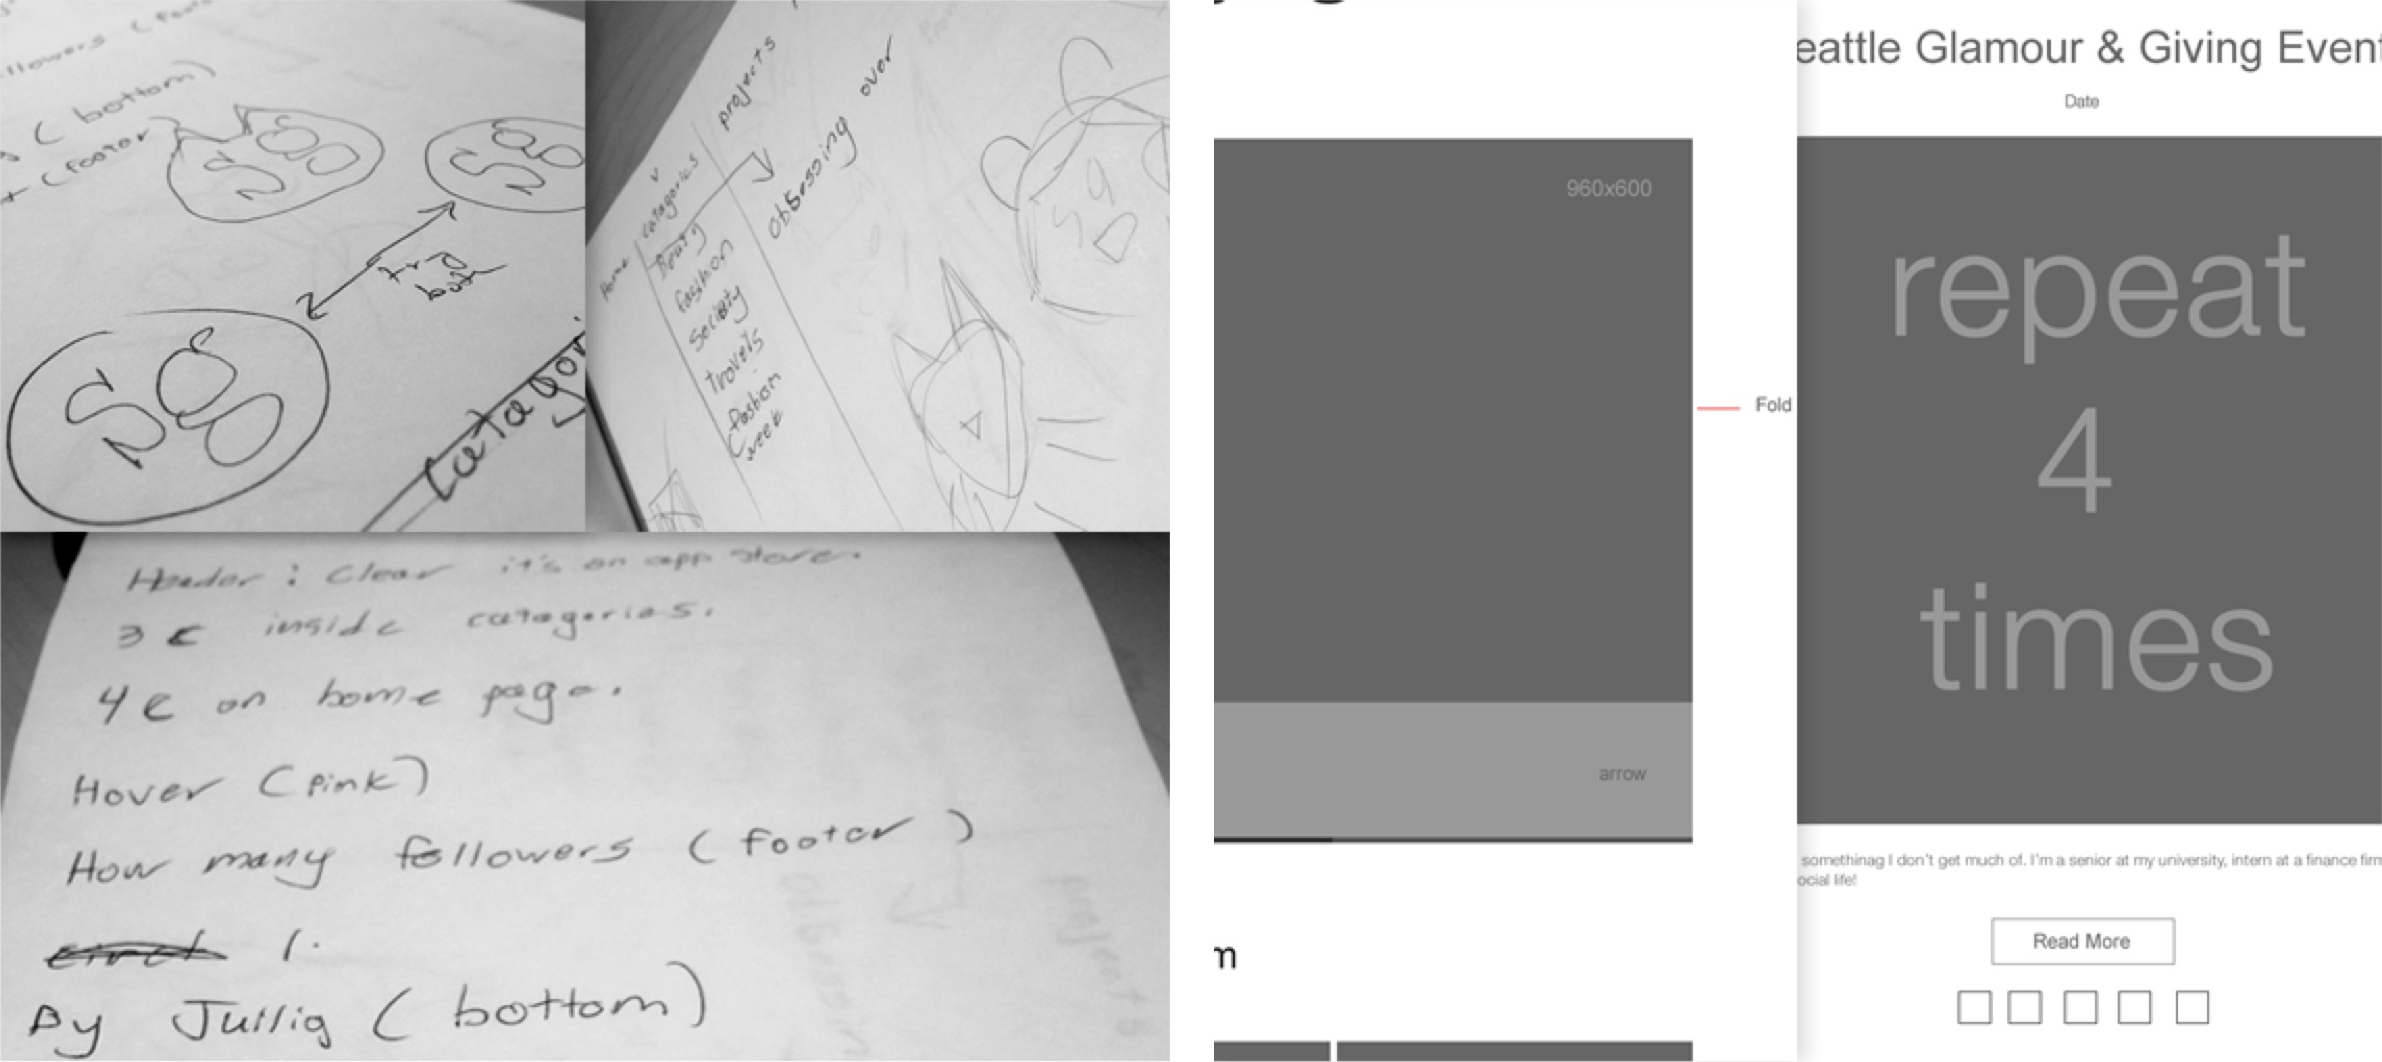 llowers
( bottom )
+ ( footer )
SgD
SgD
try
both
SgD
Catagori
projects
catagories
Home
Beauty
fashion
Society
Travels
fashion
week
Obsessing over
Sg
D
Header : Clear it's an app store.
3 E inside catagories.
4 E on home page.
Hover (Pink)
How many followers ( footer )
1.
By Jullig ( bottom )
960x600
Fold
arrow
m
eattle Glamour & Giving Event
Date
repeat
4
times
somethinag I don't get much of. I'm a senior at my university, intern at a finance firm
ocial life!
Read More